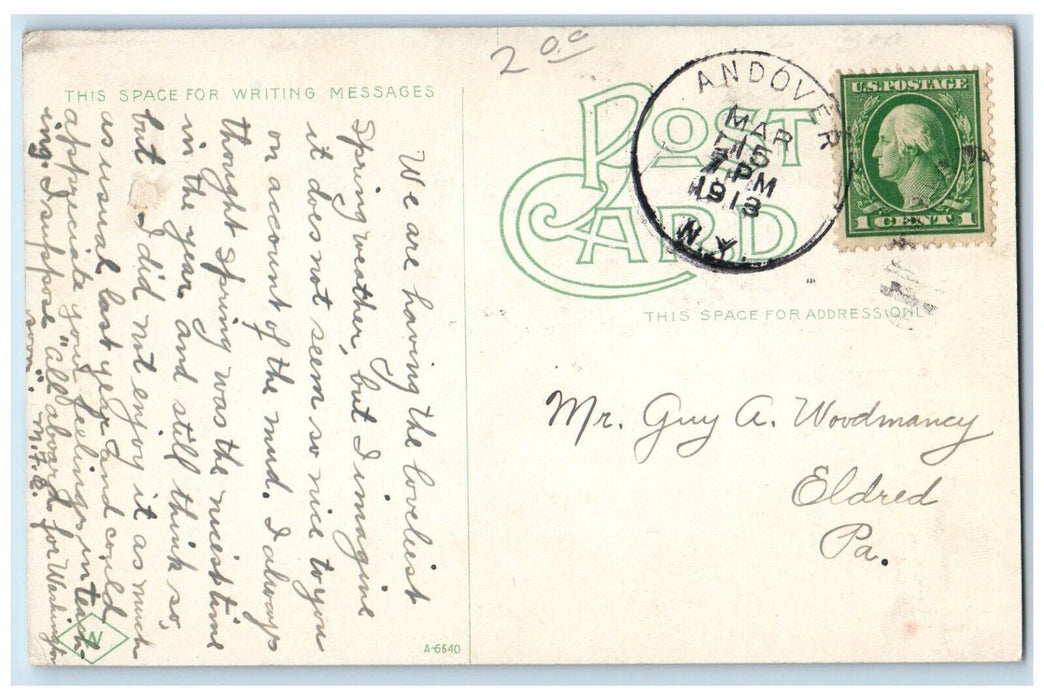 2 00
THIS SPACE FOR WRITING MESSAGES
We are having the loveliest
Spring weather, but I imagine
it does not seem so nice to you
on account of the mud. I always
thought spring was the nicest time
in the year and still think so,
but I did not enjoy it as much
as usual last year and could
appreciate your feelings in teach-
ing. I suppose "all aboard for Washington
soon". M.F.E.
W
A-6540
POST
CARD
ANDOVER
MAR
15
7 PM
1913
N.Y.
U.S. POSTAGE
1 CENT 1
THIS SPACE FOR ADDRESS ONLY
Mr. Guy A. Woodmancy
Eldred
Pa.